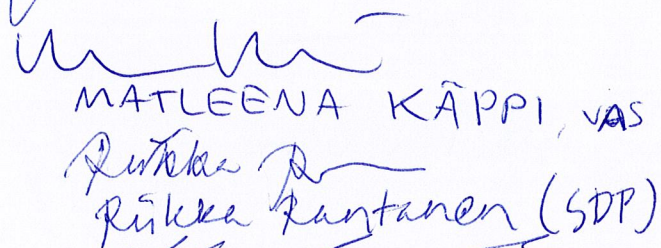 MATLEENA KÄPPI, VAS
Riikka R
Riikka Rantanen (SDP)